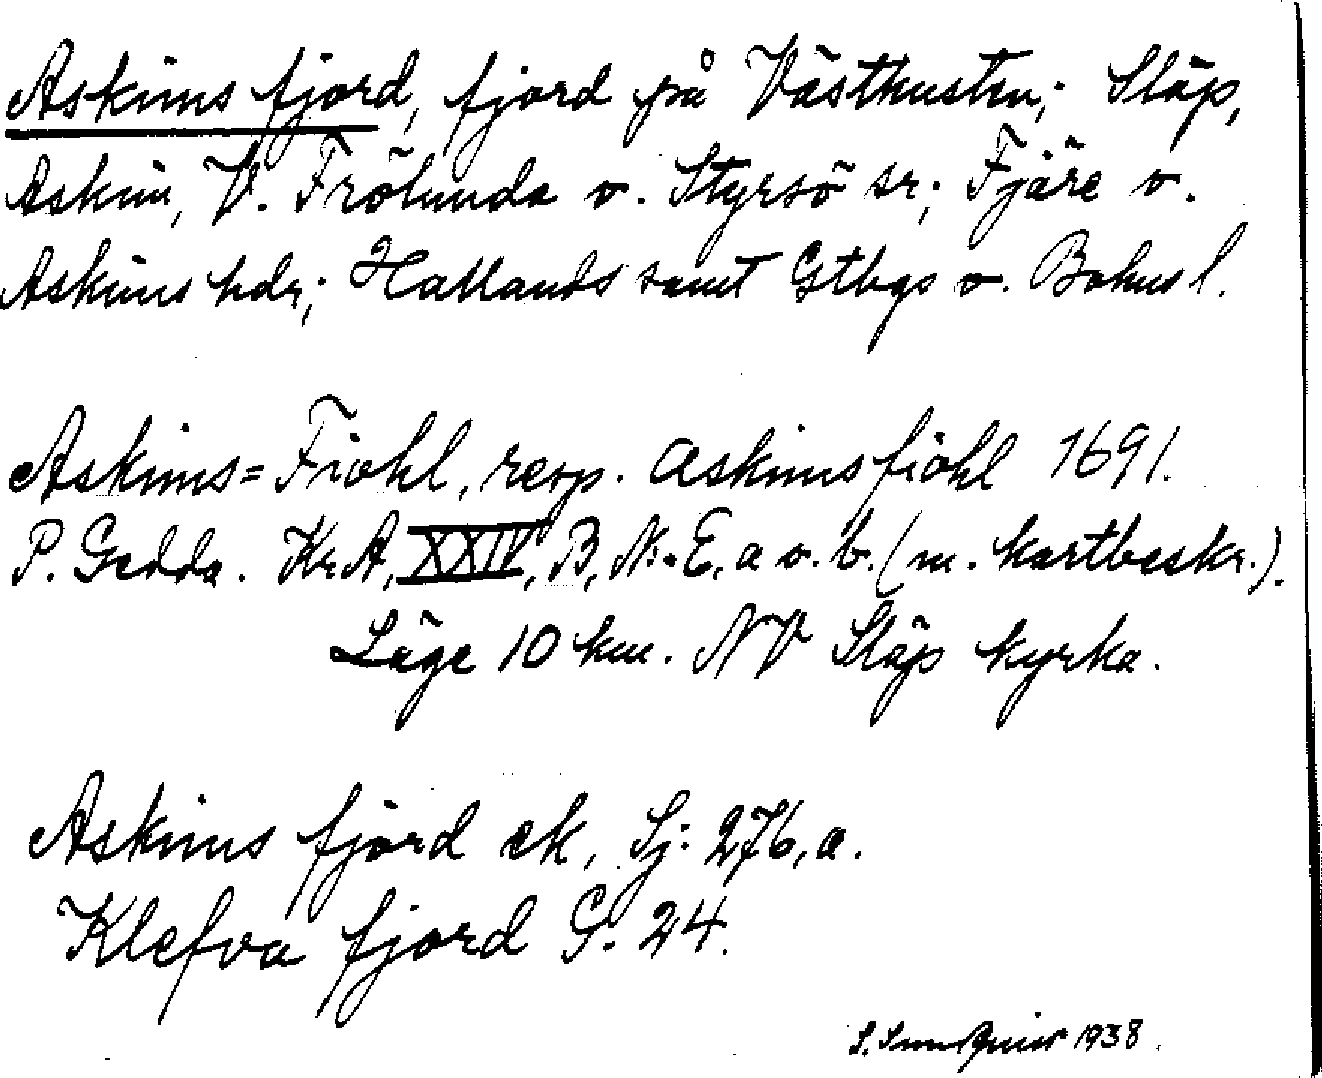 Askims fjord, fjord på Västkusten; Släp,
Askim, V. Frölunda o. Styrsö sr; Fjäre o.
Askims hdr; Hallands samt Gtbgs o. Bohus l.
Askims=Fiohl, resp. Askims fiöhl 1691.
P. Gedda. Kr.A, XXIV, B, N:. E, a o. b. (m. kartbeskr.).
Läge 10 km. NV Släp kyrka.
Askims fjord ek, Sj: 276, a.
Klefva fjord G. 24.
1938.